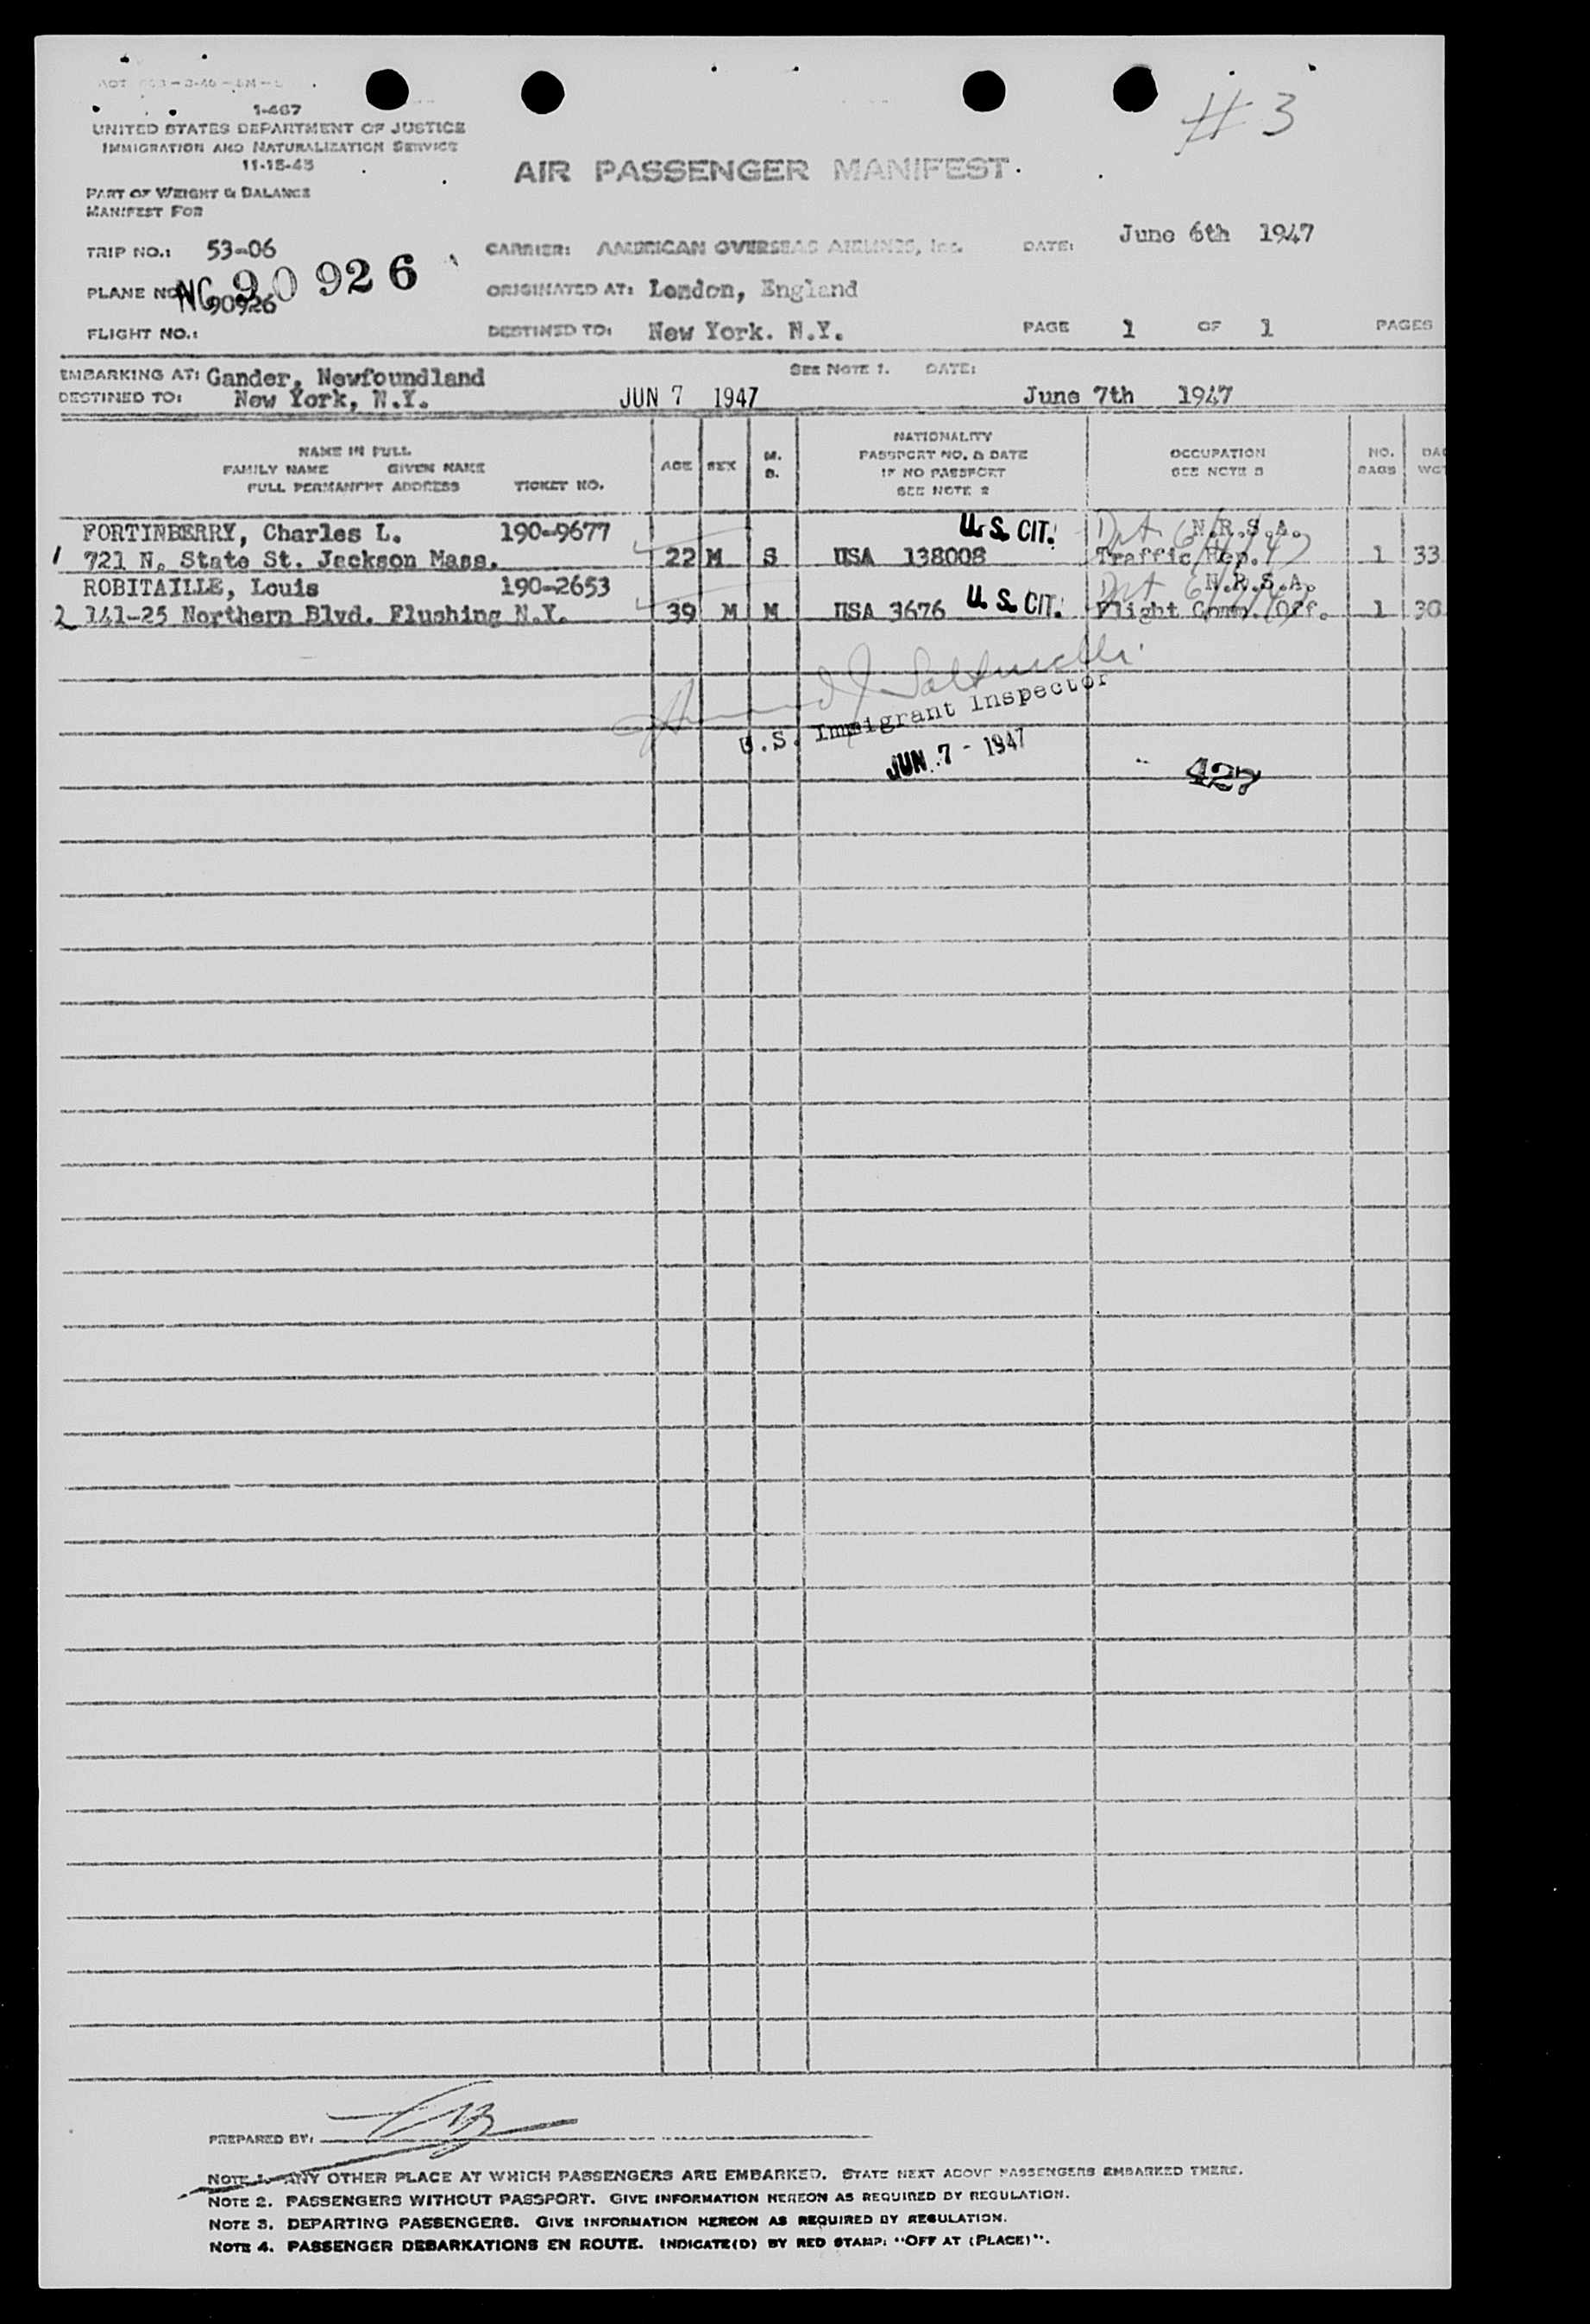 # 3
1-467
UNITED STATES DEPARTMENT OF JUSTICE
IMMIGRATION AND NATURALIZATION SERVICE
11-15-45
AIR PASSENGER MANIFEST
PART OF WEIGHT & BALANCE
MANIFEST FOR
TRIP NO.: 53-06 CARRIER: AMERICAN OVERSEAS AIRLINES, Inc. DATE: June 6th 1947
PLANE NO. NC 90926 90926 ORIGINATED AT: London, England
FLIGHT NO.: DESTINED TO: New York. N.Y. PAGE 1 OF 1 PAGES
EMBARKING AT: Gander, Newfoundland SEE NOTE 1. DATE:
DESTINED TO: New York, N.Y. JUN 7 1947 June 7th 1947
NAME IN FULL
FAMILY NAME GIVEN NAME
FULL PERMANENT ADDRESS TICKET NO.
AGE
SEX
M.
S.
NATIONALITY
PASSPORT NO. & DATE
IF NO PASSPORT
SEE NOTE 2
OCCUPATION
SEE NOTE 3
NO.
BAGS
FORTINBERRY, Charles L. 190-9677 U.S. CIT. N.R.S.A.
1 721 N. State St. Jackson Mass. 22 M S USA 138008 Traffic Rep. 1 33
ROBITAILLE, Louis 190-2653 N.R.S.A.
2 141-25 Northern Blvd. Flushing N.Y. 39 M M USA 3676 U.S. CIT. Flight Comm. Off. 1 30
U.S. Immigrant Inspector
JUN 7 - 1947
427
PREPARED BY:
NOTE 1. ANY OTHER PLACE AT WHICH PASSENGERS ARE EMBARKED. STATE NEXT ABOVE PASSENGERS EMBARKED THERE.
NOTE 2. PASSENGERS WITHOUT PASSPORT. GIVE INFORMATION HEREON AS REQUIRED BY REGULATION.
NOTE 3. DEPARTING PASSENGERS. GIVE INFORMATION HEREON AS REQUIRED BY REGULATION.
NOTE 4. PASSENGER DEBARKATIONS EN ROUTE. INDICATE(D) BY RED STAMP: "OFF AT (PLACE)".